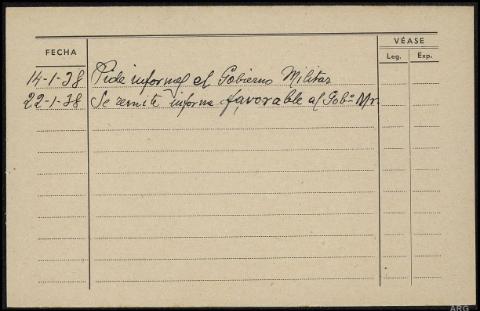 VÉASE
FECHA
Leg. Exp.
14-1-38 Pide informes el Gobierno Militar
22-1-38 Se remite informe favorable al Gobº Mr.
ARG